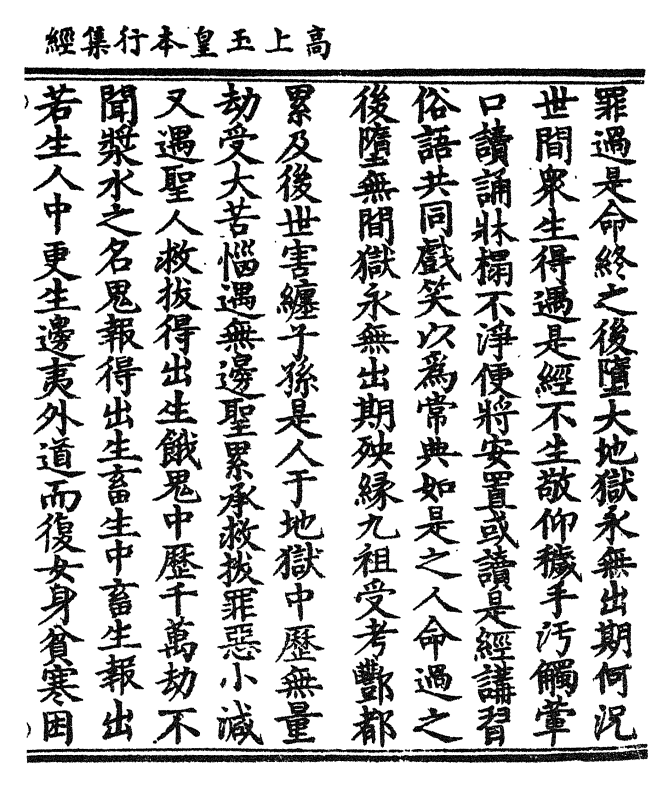 高上玉皇本行集經
罪過是命終之後墮大地獄永無出期何況
世間衆生得遇是經不生敬仰穢手汚觸葷
口讀誦牀榻不淨便將安置或讀是經講習
俗語共同戲笑以爲常典如是之人命過之
後墮無間獄永無出期殃緣九祖受考酆都
累及後世害纏子孫是人于地獄中歷無量
劫受大苦惱遇無邊聖累承救拔罪惡小減
又遇聖人救拔得出生餓鬼中歷千萬劫不
聞漿水之名鬼報得出生畜生中畜生報出
若生人中更生邊夷外道而復女身貧寒困